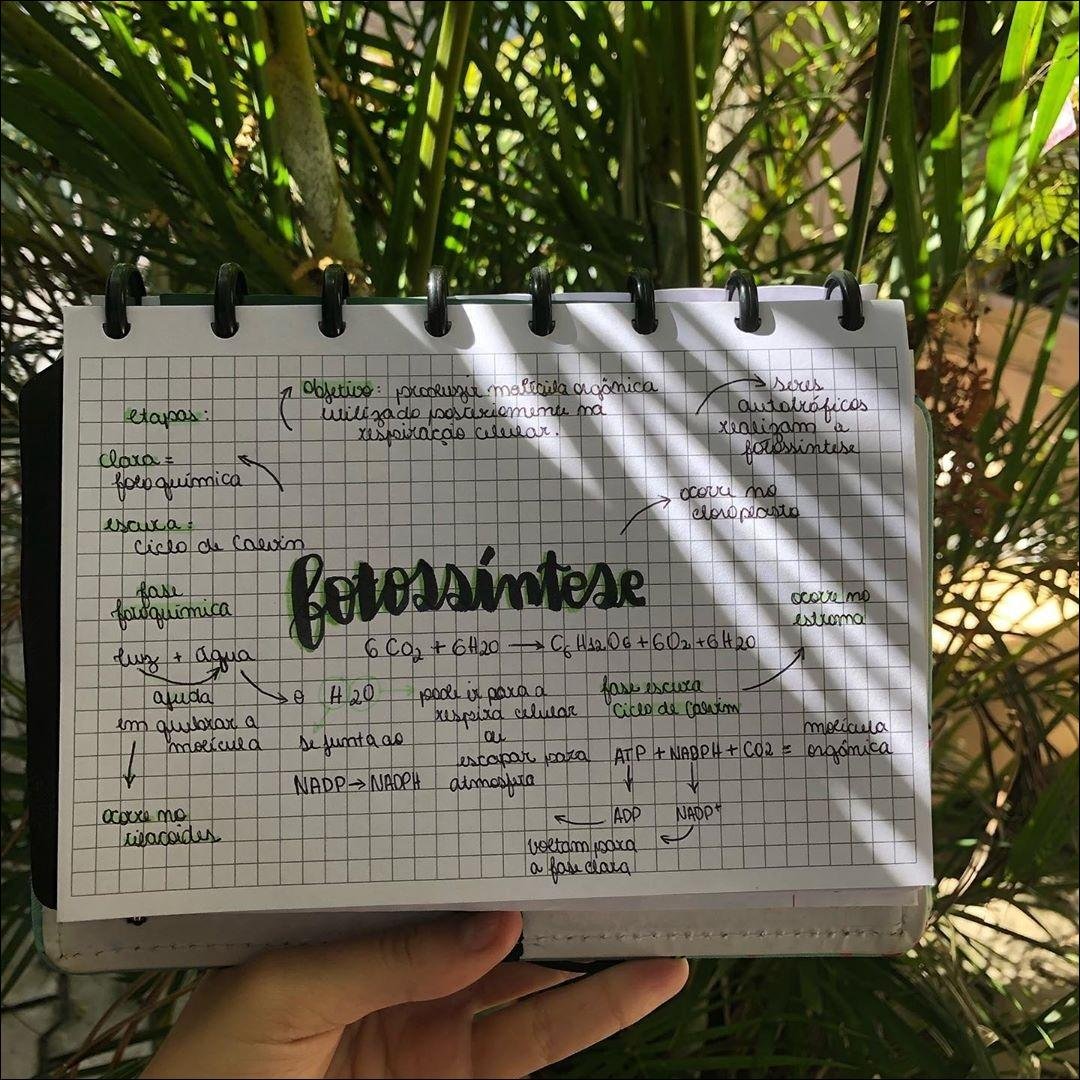 Objetivo: produzir molécula orgânica
utilizado posteriormente na
respiração celular.
seres
autotróficos
realizam a
fotossíntese
etapas:
clara =
fotoquímica
escura =
ciclo de Calvin
ocorre no
cloroplasto
fotossíntese
6 CO2 + 6H2O → C6H12O6 + 6O2 + 6H2O
fase
fotoquímica
luz + água
ajuda
em quebrar a
molécula
ocorre no
tilacoides
θ H2O
se junta ao
NADP → NADPH
pode ir para a
respira celular
ou
escapar para
atmosfera
fase escura
ciclo de Calvin
ocorre no
estroma
ATP + NADPH + CO2 = molécula
orgânica
ADP NADP+
voltam para
a fase clara